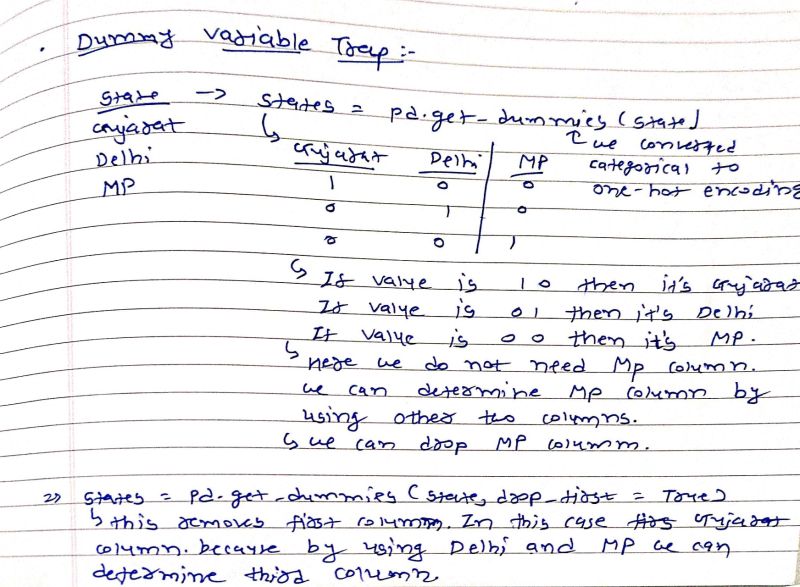 . Dummy Variable Trap :-
State → States = pd.get_dummies (state)
Gujarat ↳ ↑ we converted
Delhi Gujarat Delhi MP categorical to
MP 1 0 0 one-hot encoding
0 1 0
0 0 1
↳ If value is 1 0 then it's Gujarat
If value is 0 1 then it's Delhi
If value is 0 0 then it's MP.
↳ Here we do not need MP column.
we can determine MP column by
using other two columns.
↳ we can drop MP column.
2) States = pd.get_dummies (state, drop_first = True)
↳ this removes first column. In this case Gujarat
column. because by using Delhi and MP we can
determine third column